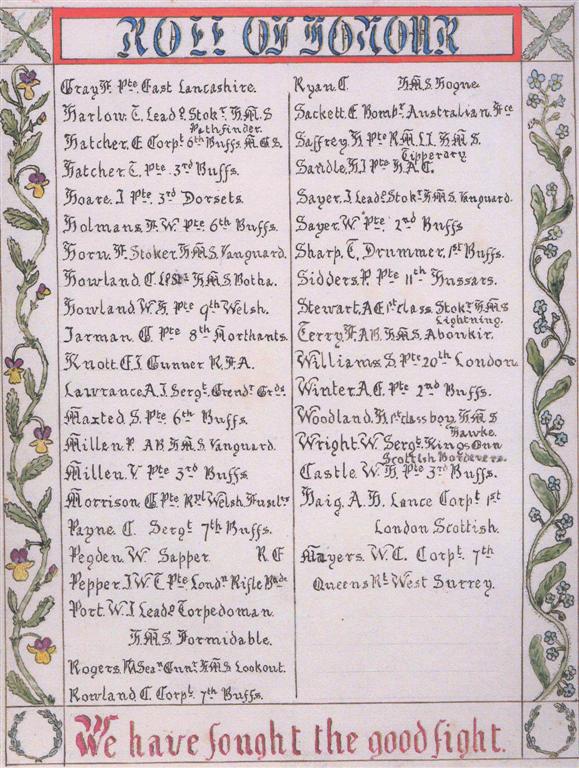 ROLL OF HONOUR
Gray F. Pte East Lancashire.
Harlow. T. Leadg Stokr. H.M.S
Pathfinder.
Hatcher. E Corpl 6th Buffs M.G.S.
Hatcher T. Pte 3rd Buffs.
Hoare. J Pte 3rd Dorsets.
Holmans. F. W. Pte 6th Buffs.
Horn. F. Stoker. H.M.S. Vanguard.
Howland. C. H.M.S Botha.
Howland W. H. Pte 9th Welsh.
Jarman. G. Pte 8th Northants.
Knott. E J Gunner R.F.A.
Lawrance A. J. Sergt. Grendr Grds
Maxted S. Pte 6th Buffs.
Millen P. AB H.M.S. Vanguard.
Millen. V. Pte 3rd Buffs
Morrison. G. Pte Ryl Welsh Fuslrs
Payne. C. Sergt 7th Buffs.
Pegden. W. Sapper. R.E
Pepper. J W T. Pte Londn Rifle Bgde
Port. W. J Leadg Torpedoman.
H.M.S. Formidable.
Rogers. Sean Gunr. H.M.S Lookout.
Rowland. C. Corpl. 7th Buffs.
Ryan. C. H.M.S Hogue.
Sackett. E Bombr. Australian. Fce
Saffrey. H Pte R.M.L.I. H.M.S.
Tipperary
Sandle. H J Pte H.A.C.
Sayer. J Leadg Stokr H.M.S. Vanguard.
Sayer. W Pte 2nd Buffs
Sharp. T. Drummer. 1st Buffs.
Sidders. P. Pte 11th Hussars.
Stewart. A E 1st class. Stokr H.M.S
Lightning.
Terry. F A.B. H.M.S. Aboukir.
Williams. S. Pte 20th London.
Winter. A. E. Pte 2nd Buffs.
Woodland. H. 1st class boy. H.M.S
Hawke.
Wright. W. Sergt. Kings Own
Scottish Borderers.
Castle. W. H. Pte 3rd Buffs.
Haig. A. H. Lance Corpl 1st
London Scottish.
Mayers. W. C. Corpl. 7th
Queens Rt West Surrey.
We have fought the good fight.